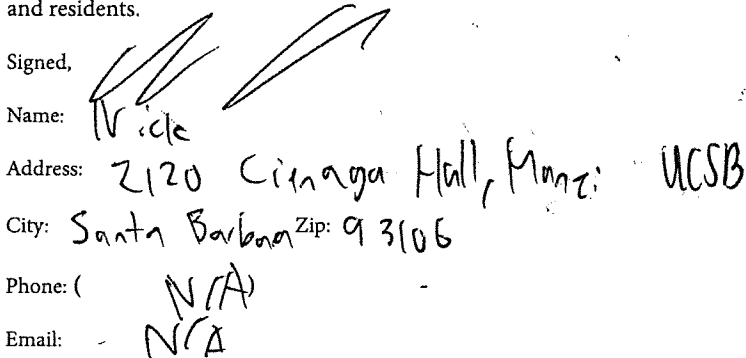 and residents.
Signed,
Name: Nick
Address: 2120 Cienaga Hall, Manzi UCSB
City: Santa Barbara Zip: 93106
Phone: ( N/A)      -
Email: N/A